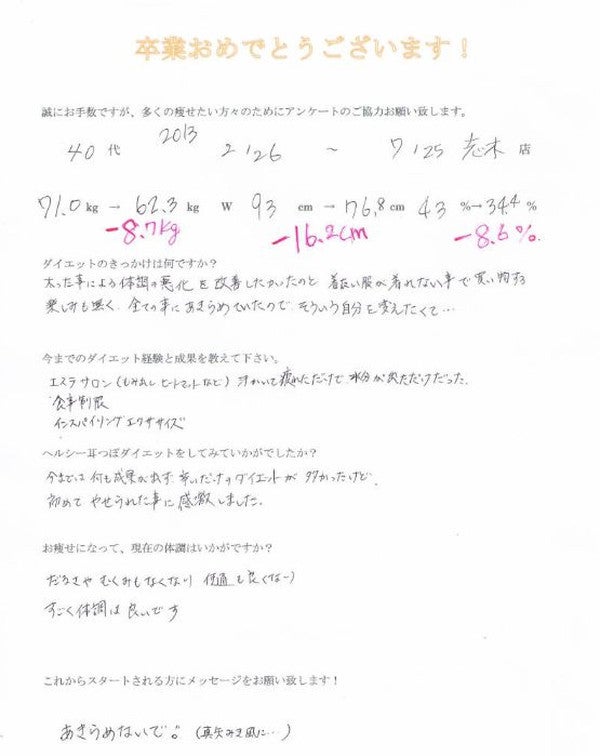 卒業おめでとうございます！
誠にお手数ですが、多くの痩せたい方々のためにアンケートのご協力お願い致します。
40代 2013 2/26 ～ 7/25 志木店
71.0kg → 62.3kg W 93cm → 76.8cm 43%→34.4%
-8.7kg -16.2cm -8.6%.
ダイエットのきっかけは何ですか？
太った事による体調の悪化を改善したかったのと 着たい服が着れない事で買い物する
楽しみも無く、全ての事にあきらめていたので、そういう自分を変えたくて…
今までのダイエット経験と成果を教えて下さい。
エステサロン(もみ出し ヒートマットなど) 汗かいて疲れただけで 水分が出ただけだった。
食事制限
インスパイリングエクササイズ
ヘルシー耳つぼダイエットをしてみていかがでしたか？
今までは何も成果が出ず、辛いだけのダイエットが多かったけど、
初めてやせられた事に感激しました。
お痩せになって、現在の体調はいかがですか？
だるさや むくみもなくなり 便通も良くなって
すごく体調は良いです
これからスタートされる方にメッセージをお願い致します！
あきらめないで。(真矢みき風に…)